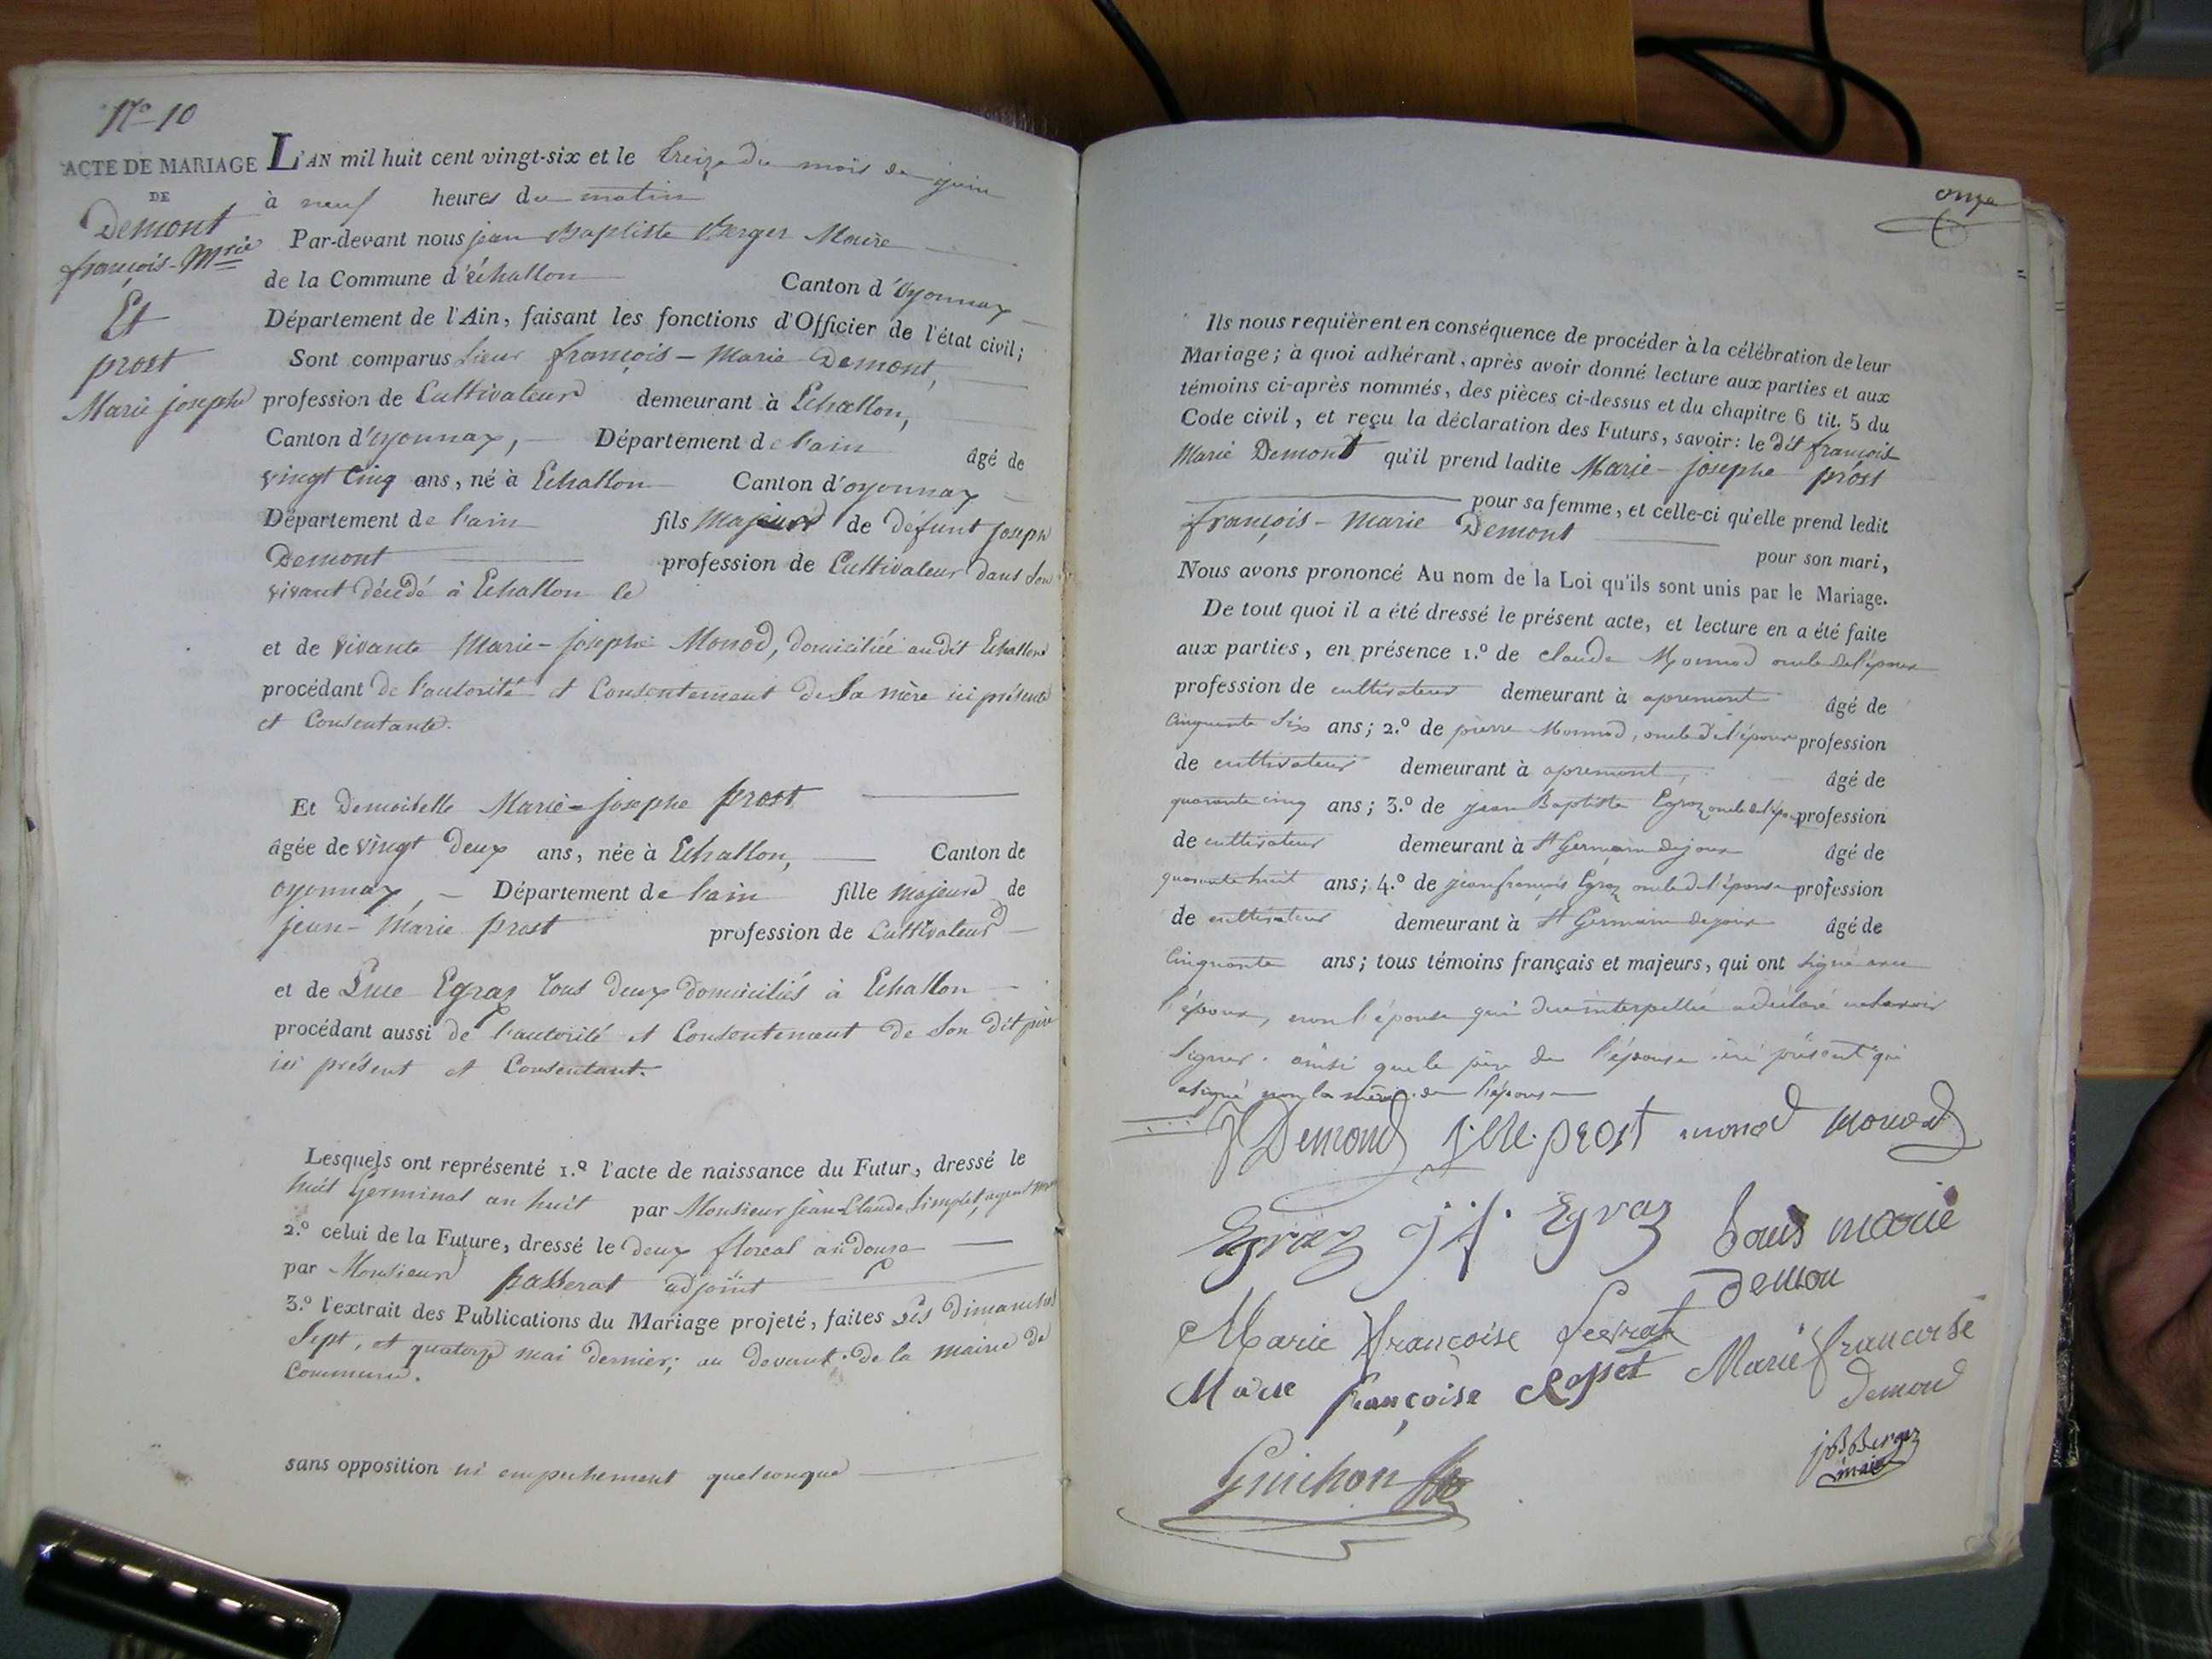 N.o 10
ACTE DE MARIAGE
DE
Demont
françois-Mrie
Et
prost
Marie josephe
L'AN mil huit cent vingt-six et le treize du mois de juin
à neuf heures du matin
Par-devant nous jean Baptiste Berger Maire
de la Commune d'échallon Canton d'oyonnax
Département de l'Ain, faisant les fonctions d'Officier de l'état civil;
Sont comparus Sieur françois-Marie Demont,
profession de Cultivateur demeurant à Echallon,
Canton d'oyonnax, Département de l'ain âgé de
vingt Cinq ans, né à Echallon Canton d'oyonnax
Département de l'ain fils Majeur de défunt joseph
Demont profession de Cultivateur dans son
vivant décédé à Echallon le
et de vivante Marie-josephe Monod, domiciliée au dit Echallon
procédant de l'autorité et Consentement de Sa mère ici présente
et Consentante.
Et Demoiselle Marie-josephe prost
âgée de vingt deux ans, née à Echallon, Canton de
oyonnax, Département de l'ain fille majeure de
jean-Marie prost profession de Cultivateur
et de Luce Egraz tous deux domiciliés à Echallon
procédant aussi de l'autorité et Consentement de Son dit père
ici présent et Consentant.
Lesquels ont représenté 1.o l'acte de naissance du Futur, dressé le
huit Germinal an huit par Monsieur jean-Claude Simplet, agent
2.o celui de la Future, dressé le deux floreal an douze
par Monsieur passerat adjoint
3.o l'extrait des Publications du Mariage projeté, faites Les Dimanches
Sept, et quatorze mai dernier; au devant de la mairie de
Commune.
sans opposition ni empechement quelconque
onze
Ils nous requièrent en conséquence de procéder à la célébration de leur
Mariage; à quoi adhérant, après avoir donné lecture aux parties et aux
témoins ci-après nommés, des pièces ci-dessus et du chapitre 6 tit. 5 du
Code civil, et reçu la déclaration des Futurs, savoir: le dit françois
Marie Demont qu'il prend ladite Marie-josephe prost
pour sa femme, et celle-ci qu'elle prend ledit
françois-Marie Demont pour son mari,
Nous avons prononcé Au nom de la Loi qu'ils sont unis par le Mariage.
De tout quoi il a été dressé le présent acte, et lecture en a été faite
aux parties, en présence 1.o de claude Monnod oncle de l'époux
profession de cultivateur demeurant à apremont âgé de
Cinquante Six ans; 2.o de pierre Monnod, oncle de l'époux profession
de cultivateur demeurant à apremont, âgé de
quarante cinq ans; 3.o de jean Baptiste Egraz oncle de l'épouse profession
de cultivateur demeurant à St Germain dejoux âgé de
quarante huit ans; 4.o de jean françois Egraz oncle de l'épouse profession
de cultivateur demeurant à St Germain dejoux âgé de
Cinquante ans; tous témoins français et majeurs, qui ont signé avec
l'époux, non l'épouse qui due interpellée a déclaré ne savoir
signer. ainsi que le père de l'épouse ici présent qui
a signé non la mère de l'épouse
f Demond j: m: prost monod Monod
Egraz j. f. Egraz Louis marie
demon
Marie françoise
Marie françoise Rosset Marie francoise
demond
Guichon
jB Berger
maire